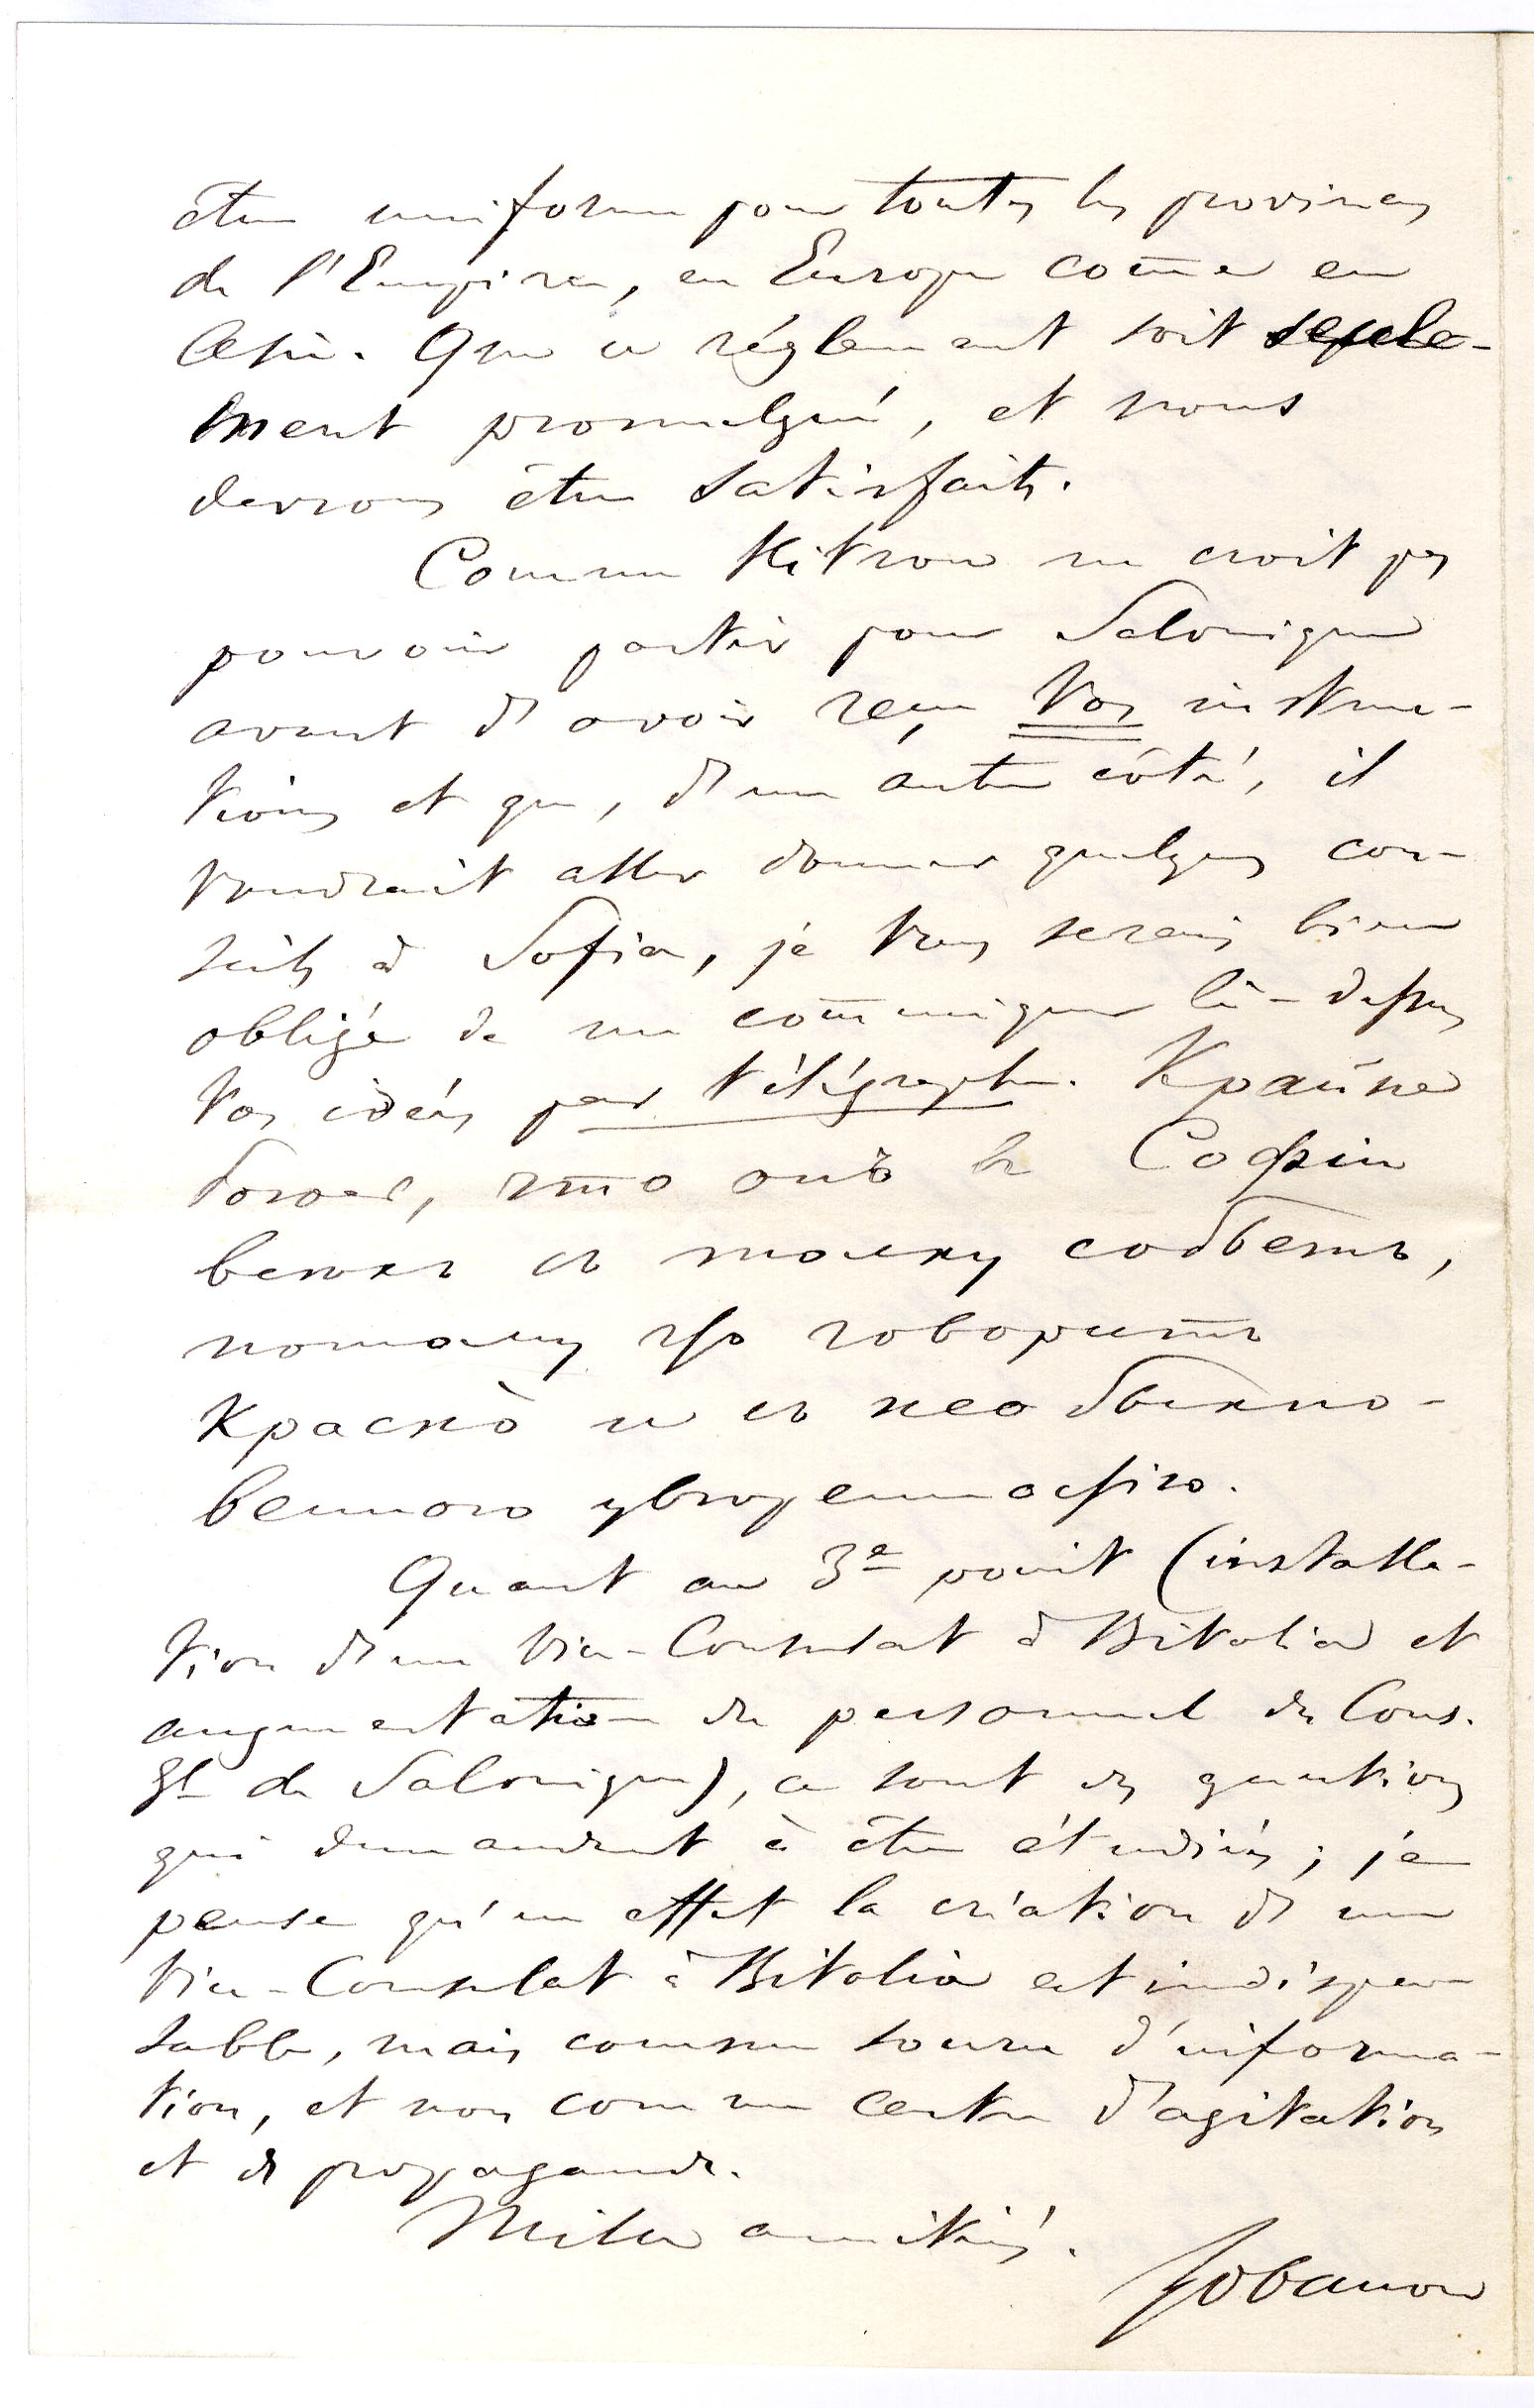 être uniforme pour toutes les provinces
de l'Empire, en Europe com̄e en
Asie. Que ce réglement soit seule-
ment promulgué, et nous
devrons être satisfaits.
Comme Hitrow ne croit pas
pouvoir partir pour Salonique
avant d'avoir reçu Vos instruc-
tions et que, d'un autre côté, il
voudrait aller donner quelques con-
seils à Sofia, je Vous serais bien
obligé de me com̄uniquer là-dessus
Vos idées par télégraphe. Крайне
боюсь, что онъ въ Софіи
собьетъ,
потому что говоритъ
красно и съ необыкно-
венною увѣренностію.
Quant au 3e point (installa-
tion d'un Vice-Consulat à Bitolia et
augmentation du personnel du Cons.
Gl de Salonique), ce sont des questions
qui demandent à être étudiées; je
pense qu'en effet la création d'un
Vice-Consulat à Bitolia est indispen-
sable, mais comme source d'informa-
tion, et non comme centre d'agitation
et de propagande.
Mille amitiés.
Lobanow